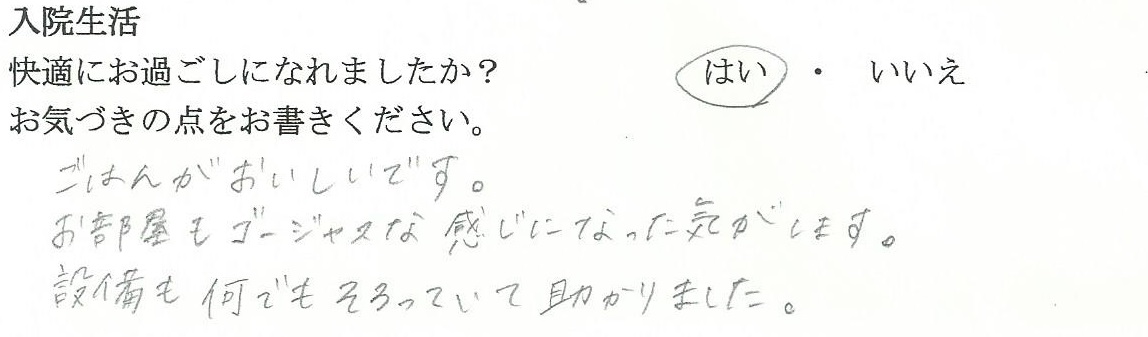 入院生活
快適にお過ごしになれましたか？ はい ・ いいえ
お気づきの点をお書きください。
ごはんがおいしいです。
お部屋もゴージャスな感じになった気がします。
設備も何でもそろっていて助かりました。